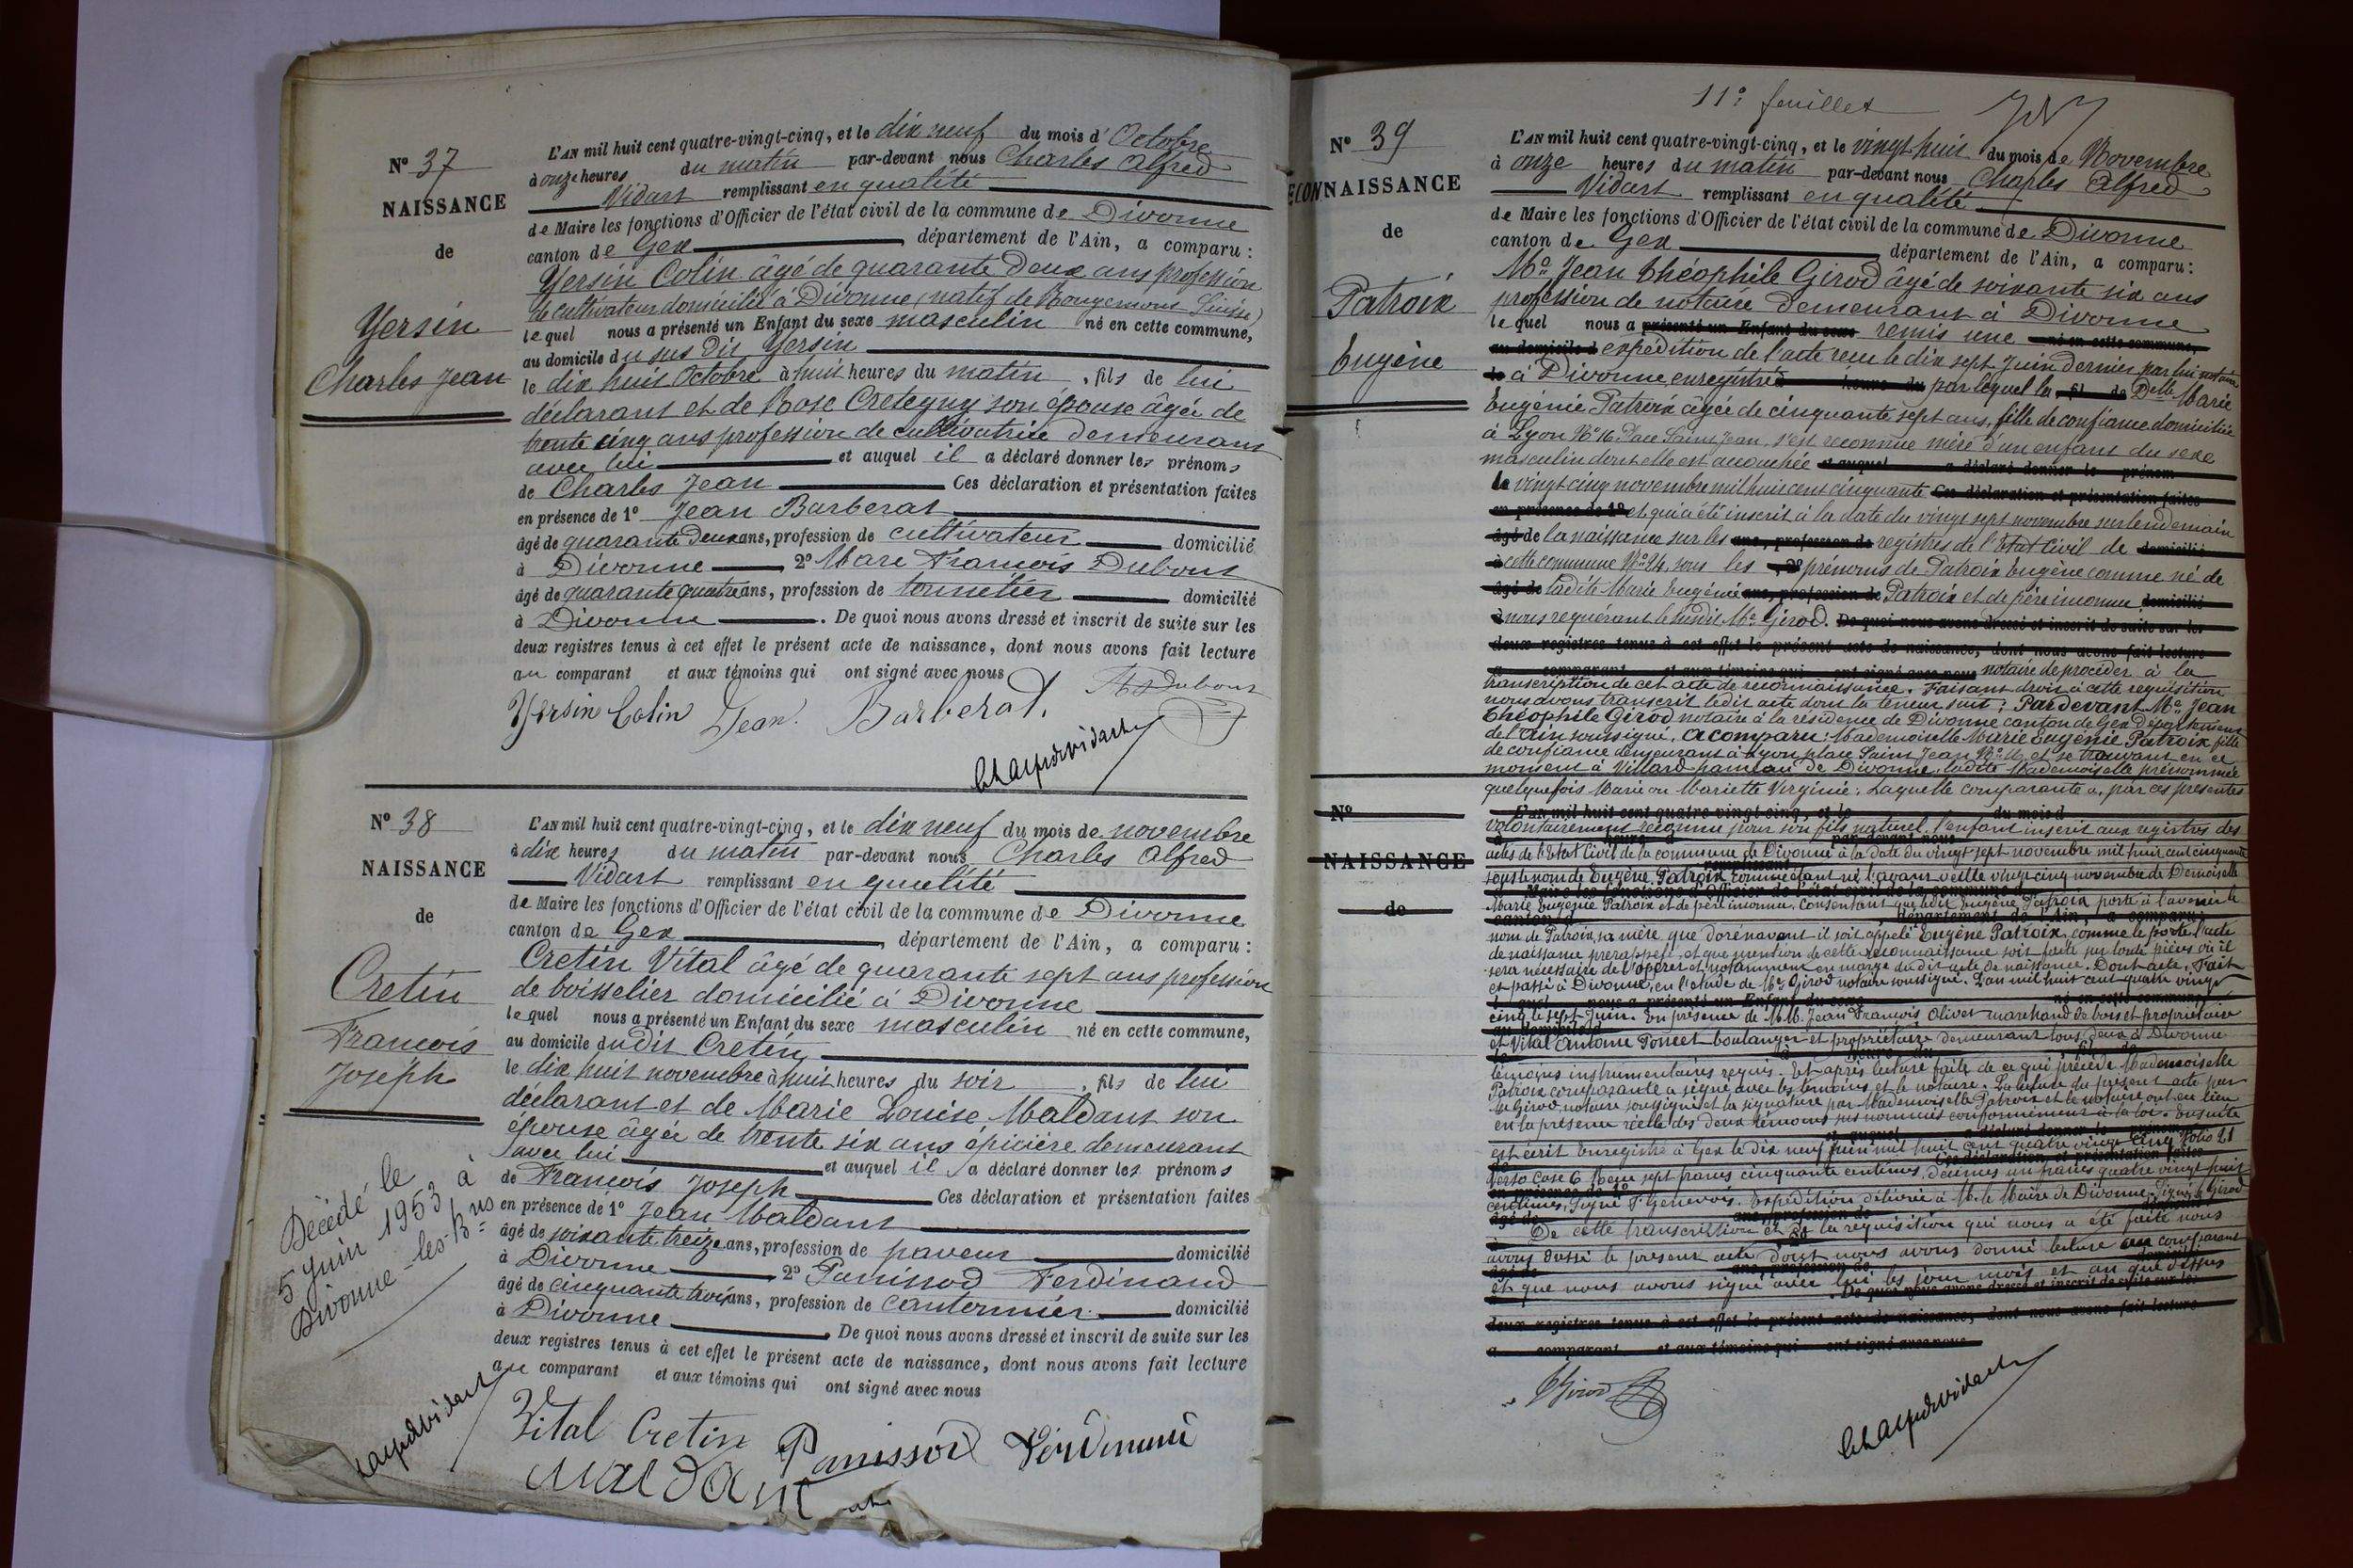 N° 37
NAISSANCE
de
Yersin
Charles Jean
L'AN mil huit cent quatre-vingt-cinq, et le dix neuf du mois d'Octobre
à onze heures du matin par-devant nous Charles Alfred
Vidart remplissant en qualité
de Maire les fonctions d'Officier de l'état civil de la commune de Divonne
canton de Gex département de l'Ain, a comparu :
Yersin Colin âgé de quarante deux ans profession
de cultivateur domicilié à Divonne (natif de Rougemont Suisse)
lequel nous a présenté un Enfant du sexe masculin né en cette commune,
au domicile du sus dit Yersin
le dix huit Octobre à huit heures du matin, fils de lui
déclarant et de Rose Cretegny son épouse âgée de
trente cinq ans profession de cultivatrice demeurant
avec lui et auquel il a déclaré donner les prénoms
de Charles Jean Ces déclaration et présentation faites
en présence de 1° Jean Barberat
âgé de quarante deux ans, profession de cultivateur domicilié
à Divonne 2° Marc François Dubout
âgé de quarante quatre ans, profession de tonnelier domicilié
à Divonne. De quoi nous avons dressé et inscrit de suite sur les
deux registres tenus à cet effet le présent acte de naissance, dont nous avons fait lecture
au comparant et aux témoins qui ont signé avec nous
Yersin Colin Jean Barberat. Dubout
N° 38
NAISSANCE
de
Cretin
François
Joseph
Décédé le
5 Juin 1953 à
Divonne-les-Bns
L'AN mil huit cent quatre-vingt-cinq, et le dix neuf du mois de novembre
à dix heures du matin par-devant nous Charles Alfred
Vidart remplissant en qualité
de Maire les fonctions d'Officier de l'état civil de la commune de Divonne
canton de Gex département de l'Ain, a comparu :
Cretin Vital âgé de quarante sept ans profession
de boisselier domicilié à Divonne
lequel nous a présenté un Enfant du sexe masculin né en cette commune,
au domicile dudit Cretin
le dix huit novembre à huit heures du soir, fils de lui
déclarant et de Marie Louise Maldant son
épouse âgée de trente six ans épicière demeurant
avec lui et auquel il a déclaré donner les prénoms
de François Joseph Ces déclaration et présentation faites
en présence de 1° Jean Maldant
âgé de soixante treize ans, profession de paveur domicilié
à Divonne 2° Panissod Ferdinand
âgé de cinquante trois ans, profession de cantonnier domicilié
à Divonne. De quoi nous avons dressé et inscrit de suite sur les
deux registres tenus à cet effet le présent acte de naissance, dont nous avons fait lecture
au comparant et aux témoins qui ont signé avec nous
Vital Cretin Panissod Ferdinand
Maldant
11e feuillet
N° 39
RECONNAISSANCE
de
Patroix
Eugène
L'AN mil huit cent quatre-vingt-cinq, et le vingt huit du mois de Novembre
à onze heures du matin par-devant nous Charles Alfred
Vidart remplissant en qualité
de Maire les fonctions d'Officier de l'état civil de la commune de Divonne
canton de Gex département de l'Ain, a comparu :
Me Jean Théophile Girod âgé de soixante six ans
profession de notaire demeurant à Divonne
lequel nous a présenté un Enfant du sexe remis une né en cette commune,
au domicile d expédition de l'acte reçu le dix sept Juin dernier par lui notaire
le à Divonne enregistré heures du par lequel la fil de Delle Marie
Eugénie Patroix âgée de cinquante sept ans, fille de confiance domiciliée
à Lyon N° 16 Place Saint Jean, s'est reconnue mère d'un enfant du sexe
masculin dont elle est accouchée et auquel a déclaré donner le prénom
le vingt cinq novembre mil huit cent cinquante Ces déclaration et présentation faites
en présence de 1° et qui a été inscrit à la date du vingt sept novembre surlendemain
âgé de la naissance sur les ans, profession de registres de l'Etat Civil de domicilié
à cette commune N° 24, sous les 2° prénoms de Patroix Eugène comme né de
âgé de ladite Marie Eugénie ans, profession de Patroix et de père inconnu domicilié
à nous requérant le susdit Me Girod. De quoi nous avons dressé et inscrit de suite sur les
deux registres tenus à cet effet le présent acte de naissance, dont nous avons fait lecture
a comparant et aux témoins qui ont signé avec nous notaire de procéder à la
transcription de cet acte de reconnaissance. Faisant droit à cette requisition
nous avons transcrit ledit acte dont la teneur suit : Pardevant Me Jean
Théophile Girod notaire à la résidence de Divonne canton de Gex Département
de l'Ain soussigné, a comparu : Mademoiselle Marie Eugénie Patroix fille
de confiance demeurant à Lyon place Saint Jean N° 16, et se trouvant en ce
moment à Villard hameau de Divonne, ladite Mademoiselle prénommée
quelquefois Marie ou Mariette Virginie. Laquelle comparante a, par ces présentes
N°
NAISSANCE
de
L'AN mil huit cent quatre-vingt-cinq, et le du mois d
volontairement reconnu pour son fils naturel l'enfant inscrit aux registres des
à heures par-devant nous
actes de l'Etat Civil de la commune de Divonne à la date du vingt sept novembre mil huit cent cinquante
remplissant
sous le nom de Eugène Patroix comme étant né l'avant veille vingt cinq novembre de Demoiselle
Maire les fonctions d'Officier de l'état civil de la commune d
Marie Eugénie Patroix et de père inconnu. Consentant que ledit Eugène Patroix porte à l'avenir le
canton d département de l'Ain, a comparu :
nom de Patroix, sa mère que dorénavant il soit appelé Eugène Patroix comme le porte l'acte
de naissance prérappelé, et que mention de cette reconnaissance soit faite sur toute pièces où il
sera nécessaire de l'opérer et notamment en marge du dit acte de naissance. Dont acte, Fait
et passé à Divonne, en l'étude de Me Girod notaire soussigné. L'an mil huit cent quatre vingt
l quel nous a présenté un Enfant du sexe né en cette commune,
cinq le sept Juin. En présence de MM. Jean François Olivet marchand de bois et propriétaire
au domicile d
et Vital Antoine Poncet boulanger et propriétaire demeurant tous deux à Divonne
le à heure du fil de
témoins instrumentaires requis. Et après lecture faite de ce qui précède Mademoiselle
Patroix comparante a signé avec les témoins et le notaire. La lecture du présent acte par
Me Girod notaire soussigné et la signature par Mademoiselle Patroix et le notaire ont eu lieu
en la présence réelle des deux témoins sus nommés conformément à la loi. Ensuite
et auquel a déclaré donner le prénom
est écrit Enregistré à Gex le dix neuf Juin mil huit cent quatre vingt cinq Folio 21
de Ces déclaration et présentation faites
verso Case 6 Reçu sept francs cinquante centimes, Décimes un francs quatre vingt huit
en présence de 1°
centimes, Signé F. Genevois. Expédition délivrée à M. le Maire de Divonne. Signé Girod
âgé de ans, profession de
De cette transcription et de la requisition qui nous a été faite nous
avons dressé le présent acte dont nous avons donné lecture au comparant
âgé de ans, profession de domicilié
et que nous avons signé avec lui les jour mois et an que dessus
De quoi nous avons dressé et inscrit de suite sur les
deux registres tenus à cet effet le présent acte de naissance, dont nous avons fait lecture
a comparant et aux témoins qui ont signé avec nous
Girod